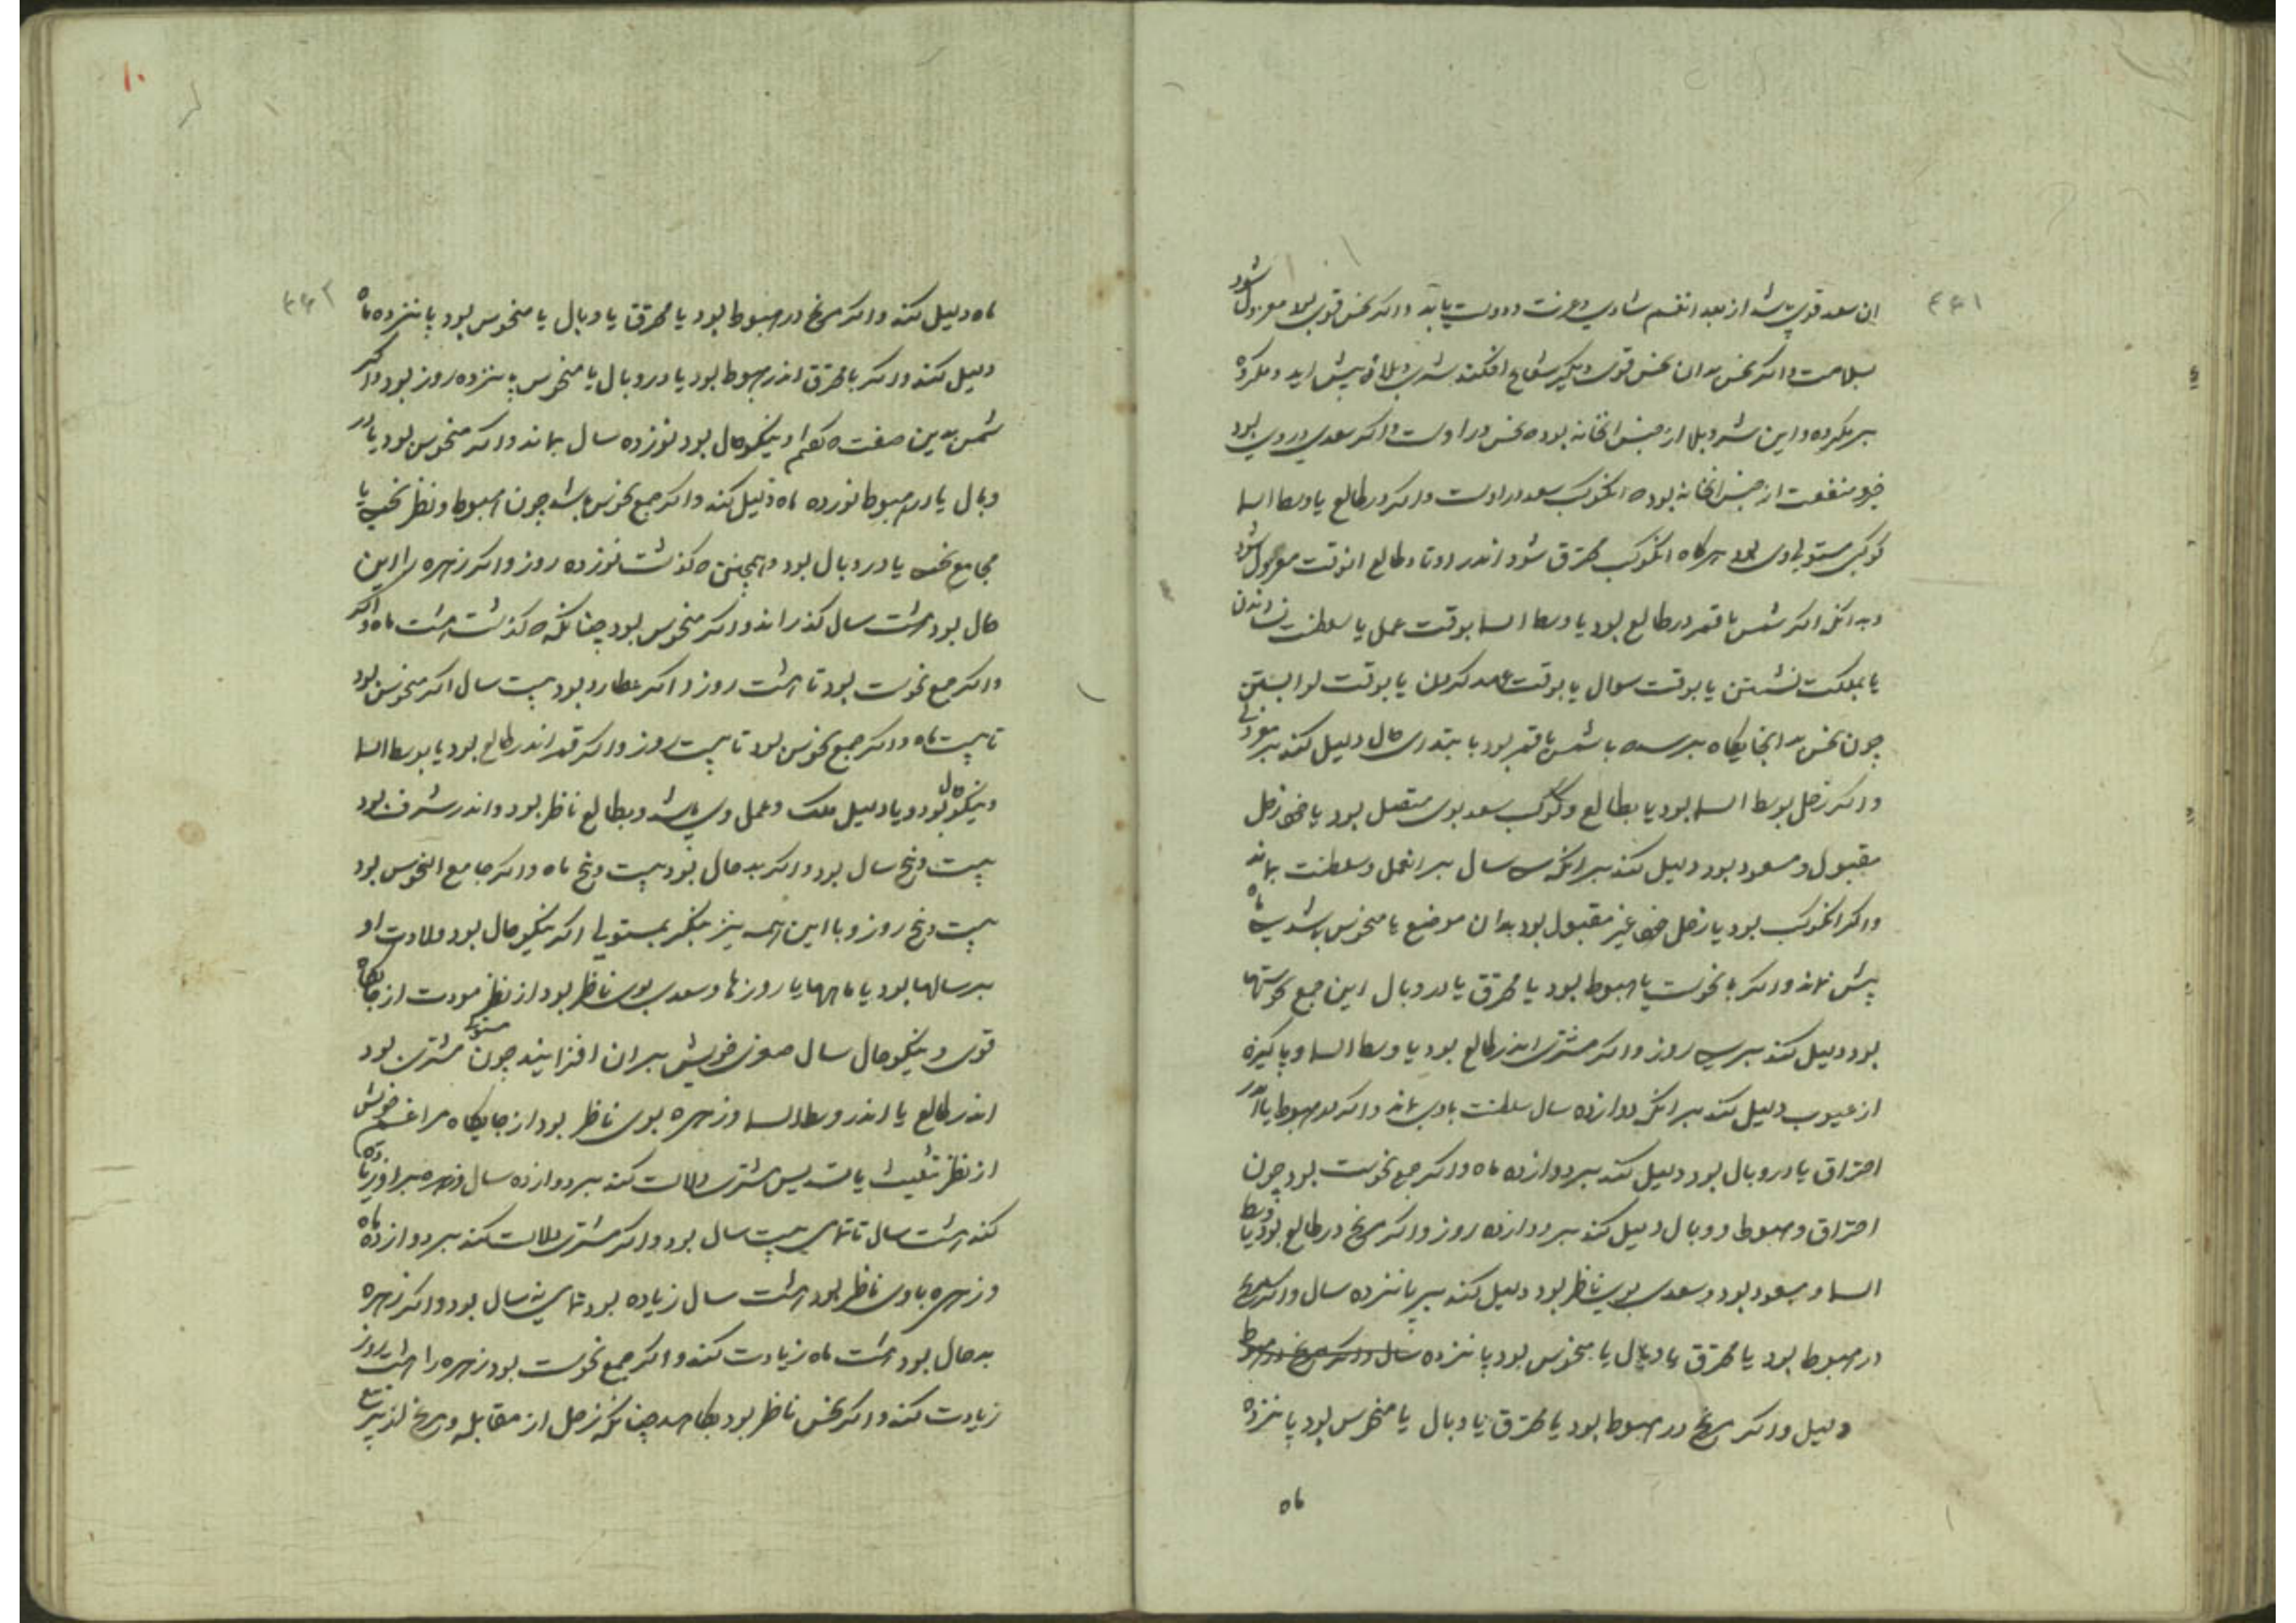 ۴۶۱
ان سعد قوی باشد از بعد انغم شادی و عزت و دولت یابد و اگر نحس قوی بود معزول شود
بملامت و اگر نحس بدان نحس قوی دیگر شعاع افکند شر و بلا پیش اید
این شر و بلا از جنس انخانه بود که نحس در اوست و اگر سعدی در وی بود
خیر و منفعت از جنس انخانه بود که انکوکب سعد در اوست و اگر در طالع یا وسط السما
کوکبی مستولی بود هرگاه انکوکب محترق شود اندر اوتاد طالع انوقت معزول شود
و بدانکه اگر شمس یا قمر در طالع بود یا وسط السما بوقت عمل یا سلطنت نشاندن
یا بمملکت نشستن یا بوقت سوال یا بوقت عهد کردن یا بوقت لوا بستن
چون نحس بدانجایگاه برسد که یا شمس یا قمر بود یا بتدای حال دلیل کند بر معزولی
و اگر زحل بوسط السما بود یا بطالع و کوکب سعد بوی متصل بود یا خود زحل
مقبول و مسعود بود دلیل کند بر انکه سی سال بر انعمل و سلطنت بماند
و اگر انکوکب بود یا زحل خود غیر مقبول بود بدان موضع یا منحوس باشد سی ماه
بیش نماند و اگر با نحوست یا هبوط بود یا محترق یا در وبال این جمع نحوستها
بود دلیل کند بر سی روز و اگر مشتری اندر طالع بود یا وسط السما و پاکیزه
از عیوب دلیل کند بر انکه دوازده سال سلطنت با وی بماند و اگر در هبوط یا اندر
احتراق یا در وبال بود دلیل کند بر دوازده ماه و اگر جمع نحوست بود چون
احتراق و هبوط و وبال دلیل کند بر دوازده روز و اگر مریخ در طالع بود یا وسط
السما و مسعود بود و سعدی بوی ناظر بود دلیل کند بر پانزده سال و اگر مریخ
در هبوط بود یا محترق یا وبال یا منحوس بود پانزده سال و اگر مریخ در هبوط
دلیل و اگر مریخ در هبوط بود یا محترق یا وبال یا منحوس بود پانزده
ماه
۱۰
۴۶۲
ماه دلیل کند و اگر مریخ در هبوط بود یا محترق یا وبال یا منحوس بود پانزده ماه
دلیل کند و اگر یا محترق اندر هبوط بود یا در وبال یا منحوس پانزده روز بود و اگر
شمس بدین صفت که گفتم و نیکو حال بود نوزده سال بماند و اگر منحوس بود یا در
وبال یا در هبوط نوزده ماه دلیل کند و اگر جمع نحوس باشد چون هبوط و نظر نحس یا
مجامع نحس یا در وبال بود و همچنین که گذشت نوزده روز و اگر زهره را این
حال بود هشت سال گذراند و اگر منحوس بود چنانکه گذشت هشت ماه و اگر
و اگر جمع نحوست بود تا هشت روز و اگر عطارد بود بیست سال اگر منحوس بود
تا بیست ماه و اگر جمع نحوس بود تا بیست روز و اگر قمر اندر طالع بود یا بوسط السما
و نیکو حال بود و یا دلیل ملک و عمل وی باشد و بطالع ناظر بود و اندر شرف بود
بیست و پنج سال بود و اگر بد حال بود بیست و پنج ماه و اگر جامع النحوس بود
بیست و پنج روز و با این همه نیز بنگر بمستولی اگر نیکو حال بود و دلالت او
بر سالها بود یا ماهها یا روزها و سعدی بوی ناظر بود از نظر مودت از جایگاه
قوی و نیکو حال سال صغری خویش بر ان افزایند چون مستولی مشتری بود
اندر طالع یا اندر وسط السما و زهره بوی ناظر بود از جایگاه مراغم خویش
از نظر تثلیث یا تسدیس مشتری دلالت کند بر دوازده سال و زهره بر او زیاده
کند هشت سال تا تمامی بیست سال بود و اگر مشتری دلالت کند بر دوازده ماه
و زهره با وی ناظر بود هشت سال زیاده بود تمامی نه سال بود و اگر زهره
بد حال بود هشت ماه زیادت کند و اگر جمع نحوست بود زهره را هشت روز
زیادت کند و اگر نحس ناظر بود بکاهد چنانکه زحل از مقابله و مریخ از تربیع